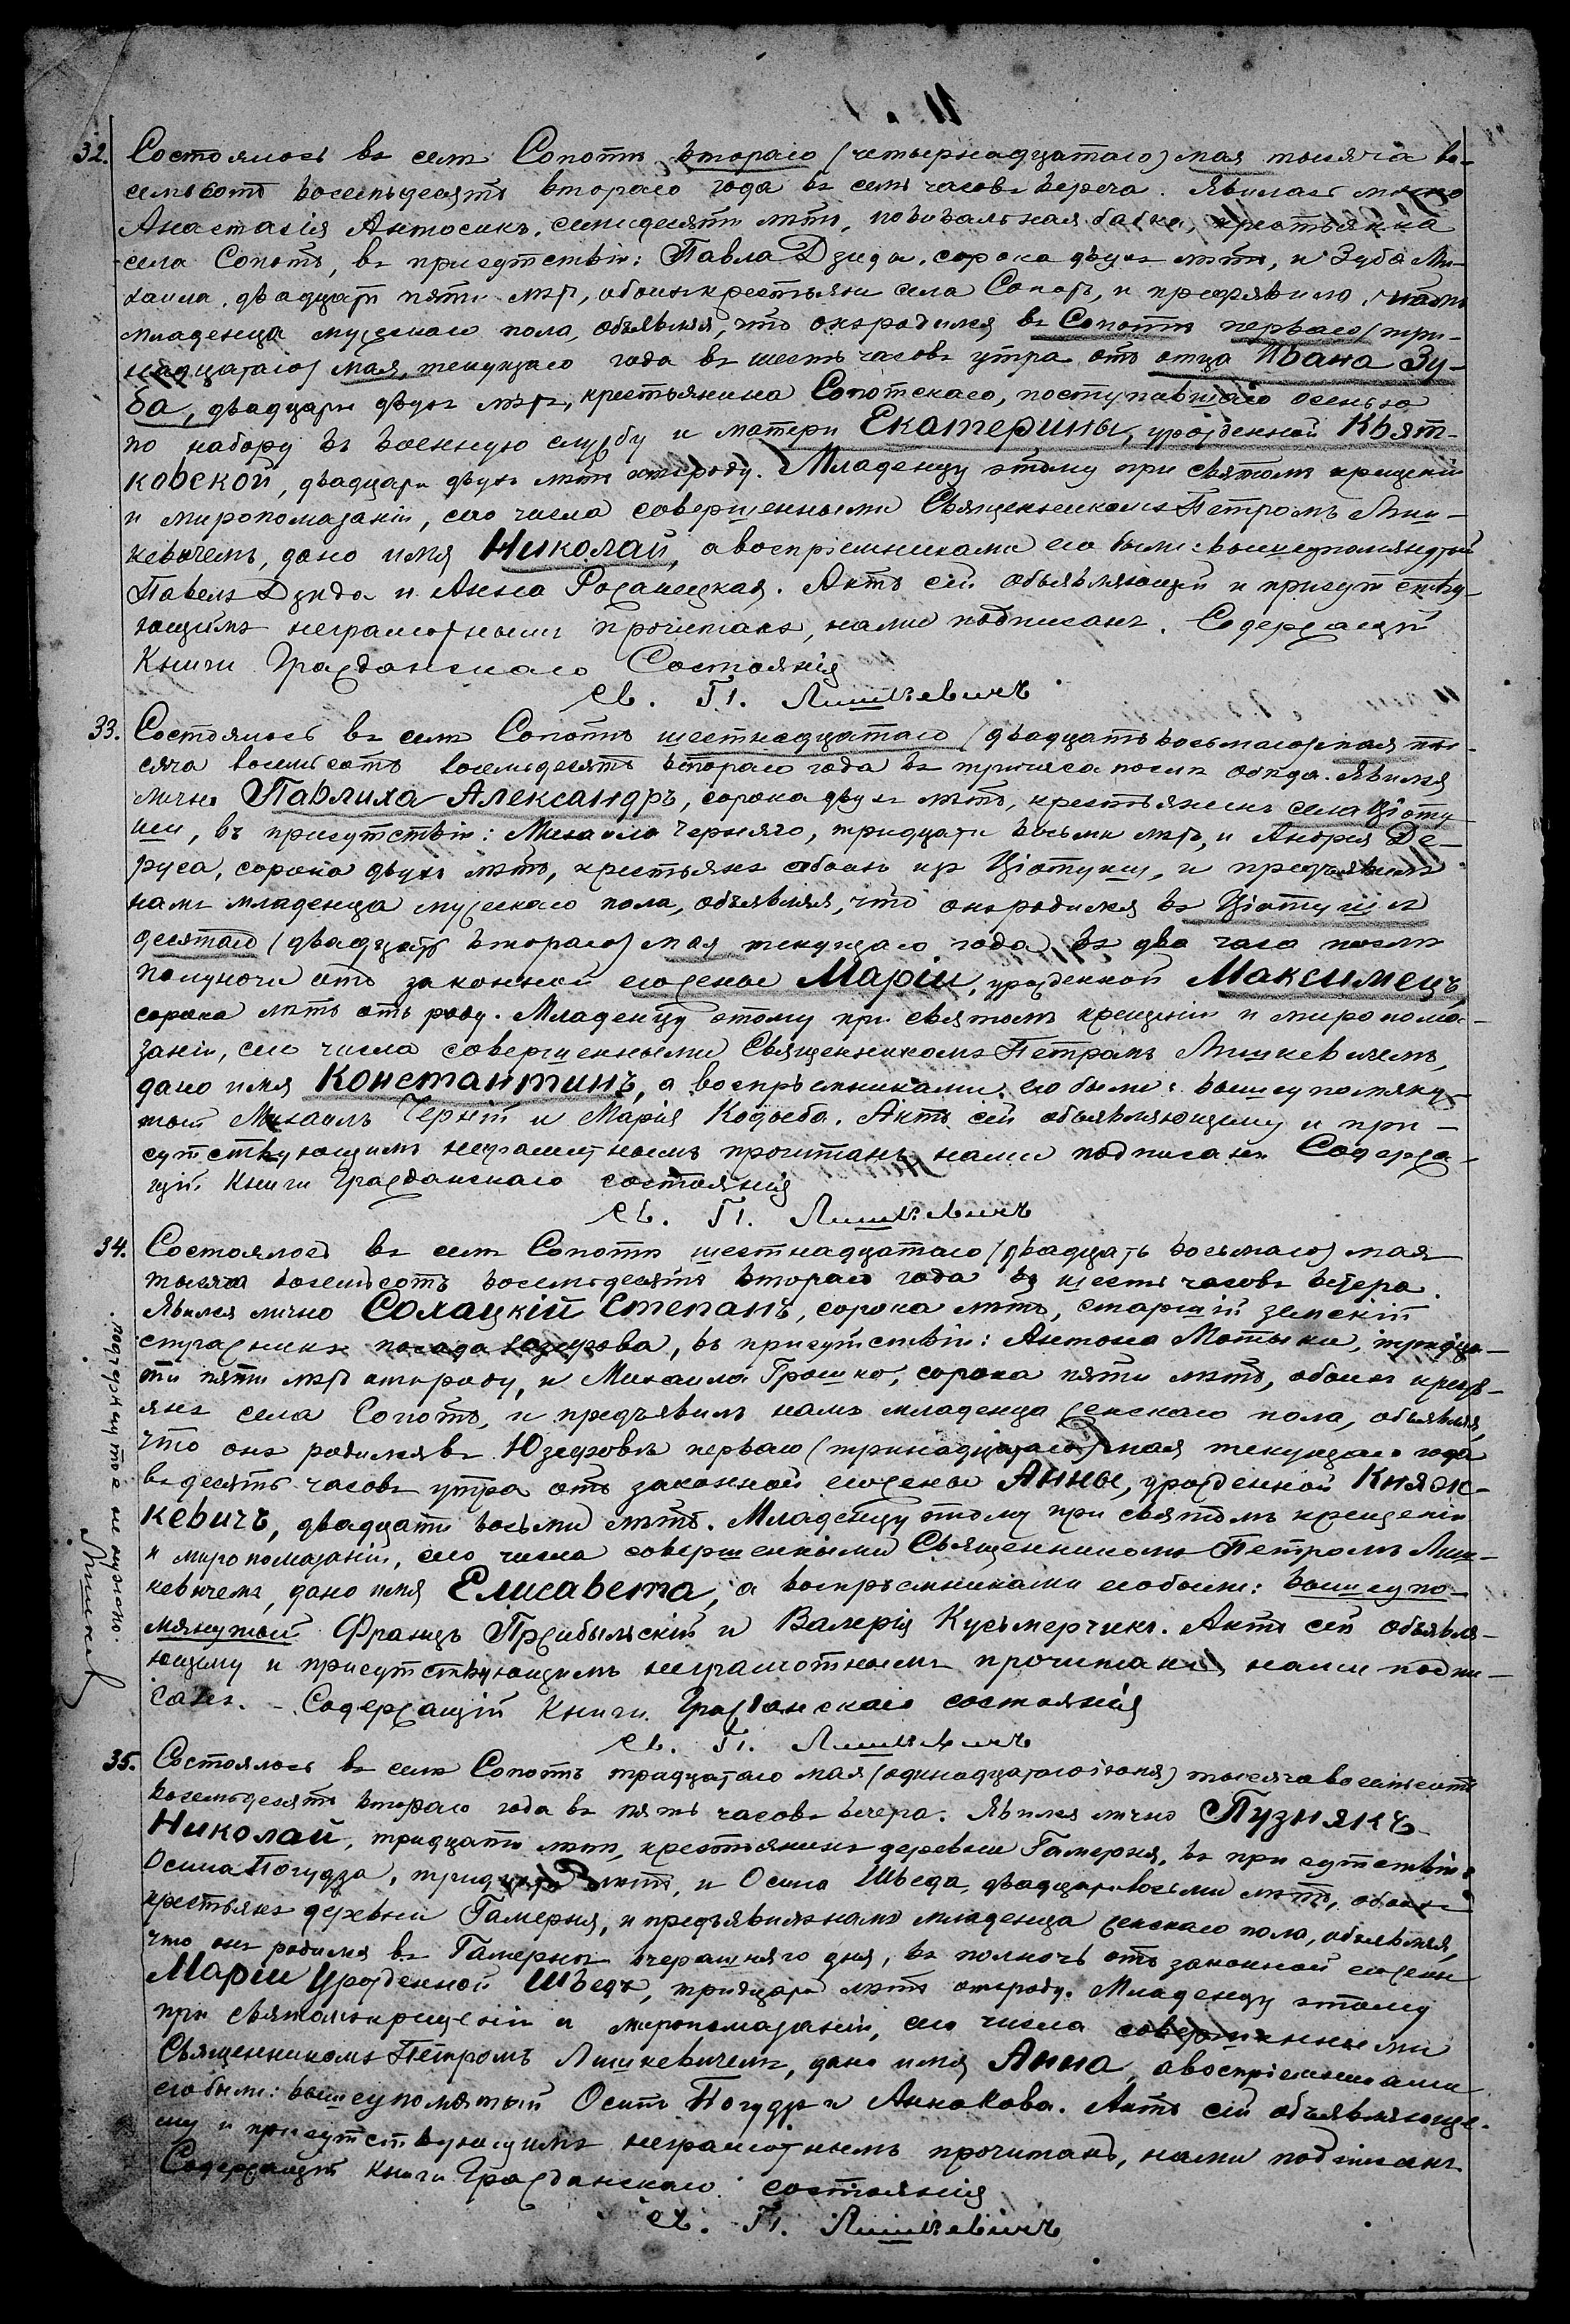 32. Состоялось въ селѣ Сопотѣ втораго (четырнадцатаго) мая тысяча во-
семьсотъ восемьдесятъ втораго года въ семь часовъ вечера. Явилась лично
Анастасія Антосикъ, семидесяти лѣтъ, повивальная бабка, крестьянка
села Сопотъ, въ присутствіи: Павла Дзида, сорока двухъ лѣтъ, и Зуба Ми-
хаила, двадцати пяти лѣтъ, обоихъ крестьянъ села Сопотъ, и предъявила намъ
младенца мужескаго пола, объявляя, что онъ родился въ Сопотѣ перваго (три-
надцатаго) мая, текущаго года въ шесть часовъ утра отъ отца Ивана Зу-
ба, двадцати двухъ лѣтъ, крестьянина Сопотскаго, поступившаго осенью
по набору въ военную службу и матери Екатерины, урожденной Квят-
ковской, двадцати двухъ лѣтъ отъ роду. Младенцу этому при святомъ крещеніи
и миропомазаніи, сего числа совершенными Священникомъ Петромъ Лиш-
кевичемъ, дано имя Николай, а воспріемниками его были: вышеупомянутый
Павелъ Дзида и Анна. Актъ сей объявляющей и присутству-
ющимъ неграмотнымъ прочитанъ, нами подписанъ. Содержащій
Книги Гражданскаго Состоянія
Св. П. Лишкевичъ
33. Состоялось въ селѣ Сопотѣ шестнадцатаго (двадцать восьмаго) мая ты-
сяча восемьсотъ восемьдесятъ втораго года въ три часа послѣ обѣда. Явился
лично Павлиха Александръ, сорока двухъ лѣтъ, крестьянинъ села Ціоту-
ши, въ присутствіи: Михаила Черняго, тридцати восьми лѣтъ, и Андрея Де-
руса, сорока двухъ лѣтъ, крестьянъ обоихъ изъ Ціотуши, и предъявилъ
намъ младенца мужескаго пола, объявляя, что онъ родился въ Ціотушѣ
десятаго (двадцать втораго) мая текущаго года въ два часа послѣ
полуночи отъ законной его жены Маріи, урожденной Максимецъ
сорока лѣтъ отъ роду. Младенцу этому при святомъ крещеніи и миропома-
заніи, сего числа совершенными Священникомъ Петромъ Лишкевичемъ,
дано имя Константинъ, а воспріемниками его были: вышеупомяну-
тый Михаилъ Черній и Марія Кодыба. Актъ сей объявляющему и при-
сутствующимъ неграмотнымъ прочитанъ нами подписанъ Содержа-
щій Книги Гражданскаго состоянія
Св. П. Лишкевичъ
34. Состоялось въ селѣ Сопотѣ шестнадцатаго (двадцать восьмаго) мая
тысяча восемьсотъ восемьдесятъ втораго года въ шесть часовъ вечера.
Явился лично Солацкій Степанъ, сорока лѣтъ, старшій земскій
стражникъ посада Юзефова, въ присутствіи: Антона Мотыки, тридца-
ти пяти лѣтъ отъ роду, и Михаила Грошко, сорока пяти лѣтъ, обоихъ кресть-
янъ села Сопотъ, и предъявилъ намъ младенца женскаго пола, объявляя,
что онъ родился въ Юзефовѣ перваго (тринадцатаго) мая текущаго года
въ десять часовъ утра отъ законной его жены Анны, урожденной Княж-
кевичъ, двадцати восьми лѣтъ. Младенцу этому при святомъ крещеніи
и миропомазаніи, сего числа совершенными Священникомъ Петромъ Лиш-
кевичемъ, дано имя Елисавета, а воспріемниками его были: вышеупо-
мянутый Францъ Пржибыльскій и Валерія Кусьмерчикъ. Актъ сей объявля-
ющему и присутствующимъ неграмотнымъ прочитанъ, нами подпи-
санъ. – Содержащій Книги Гражданскаго состоянія
Св. П. Лишкевичъ
подчеркнутое не нужно.
Лишкев
35. Состоялось въ селѣ Сопотѣ тридцатаго мая (одинадцатаго іюня) тысяча восемьсотъ
восемьдесятъ втораго года въ пять часовъ вечера. Явился лично Пузнякъ
Николай, тридцати лѣтъ, крестьянинъ деревни Гамерня, въ присутствіи:
Осипа Погудза, тридцати лѣтъ, и Осипа Шведа, двадцати восьми лѣтъ, обоихъ
крестьянъ деревни Гамерня, и предъявилъ намъ младенца женскаго пола, объявляя,
что онъ родился въ Гамернѣ вчерашняго дня, въ полночь отъ законной его жены
Маріи Урожденной Шведъ, тридцати лѣтъ отъ роду. Младенцу этому
при святомъ крещеніи и миропомазаніи, сего числа совершенными
Священникомъ Петромъ Лишкевичемъ, дано имя Анна, а воспріемниками
его были: вышеупомятый Осипъ Погудзъ и Анна Кова. Актъ сей объявляюще-
му и присутствующимъ неграмотнымъ прочитанъ, нами подписанъ
Содержащій Книги Гражданскаго состоянія
Св. П. Лишкевичъ